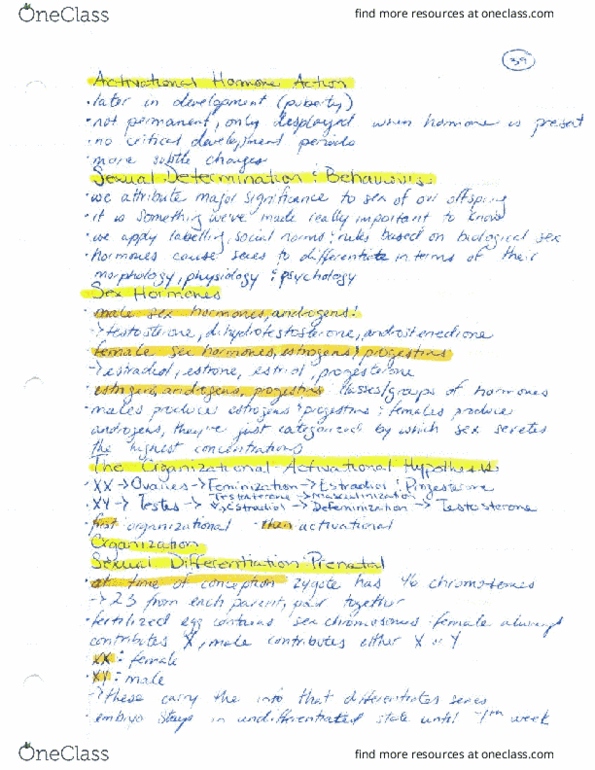 OneClass
find more resources at oneclass.com
39
Activational Hormone Action
• later in development (puberty)
• not permanent, only displayed when hormone is present
• no critical development periods
• more subtle changes
Sexual Determination & Behaviours:
• we attribute major significance to sex of our offspring
• it is something we've made really important to know
• we apply labelling, social norms & rules based on biological sex
• hormones cause sexes to differentiate in terms of their
morphology, physiology & psychology
Sex Hormones
• male sex hormones, androgens:
-> testosterone, dihydrotestosterone, androstenedione
female sex hormones, estrogens & progestins
-> estradiol, estrone, estriol, progesterone
• estrogens, androgens, progestins: classes/groups of hormones
• males produce estrogens & progestins & females produce
androgens, they're just categorized by which sex secretes
the highest concentrations
The Organizational Activational Hypothesis
• XX -> Ovaries -> Feminization -> Estradiol & Progesterone
• XY -> Testes -> Testosterone -> Masculinization -> Testosterone
Estradiol -> Defeminization
• first organizational - then activational
Organization
Sexual Differentiation: Prenatal
• at time of conception zygote has 46 chromosomes
-> 23 from each parent, pair together
• fertilized egg contains sex chromosomes: female always
contributes X, male contributes either X or Y
• XX: female
• XY: male
-> these carry the info that differentiates sexes
• embryo stays in undifferentiated state until 7th week
OneClass
find more resources at oneclass.com